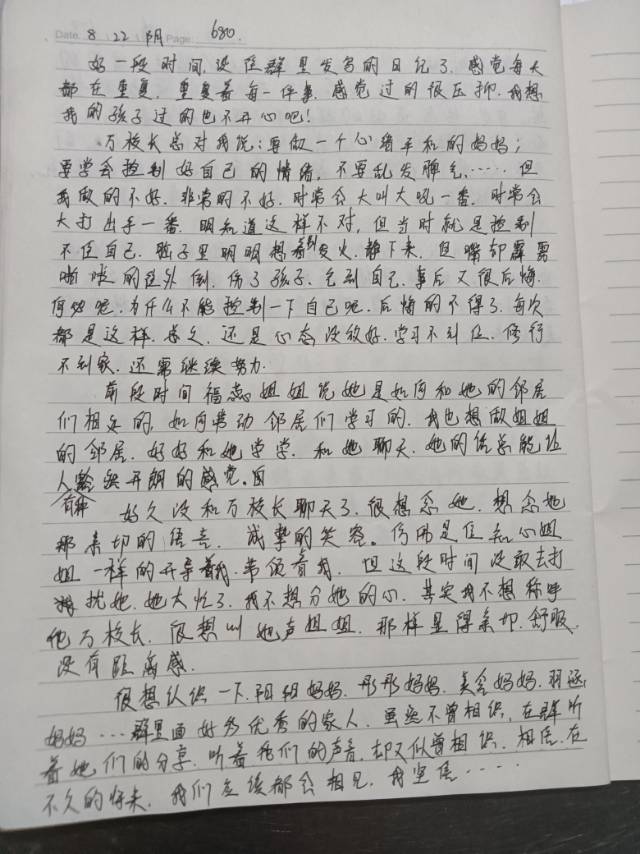 Date 8 22 阴 Page 680.
好一段时间没在群里发自的日记了.感觉每天
都在重复.重复着每一件事.感觉过的很压抑.我想
我的孩子过的也不开心吧!
万校长总对我说:要做一个心绪平和的妈妈;
要学会控制好自己的情绪,不要乱发脾气,……但
我做的不好.非常的不好.时常会大叫大吼一番.时常会
大打出手一番.明知道这样不对,但当时就是控制
不住自己.脑子里明明想着别发火.静下来,但嘴却霹雳
啪啦的往外倒,伤了孩子.气到自己.事后又很后悔.
何必呢.为什么不能控制一下自己呢.后悔的不得了.每次
都是这样.总之,还是心态没放好.学习不到位,修行
不到家.还需继续努力.
前段时间福志姐姐说她是如何和她的邻居
们相处的,如何带动邻居们学习的.我也想做姐姐
的邻居.好好和她学学.和她聊天.她的话总能让
人有种豁然开朗的感觉.
好久没和万校长聊天了.很想念她.想念她
那亲切的语言.诚挚的笑容。仿佛是位知心姐
姐一样的开导着我.带领着我.但这段时间没敢去打
扰她.她太忙了.我不想分她的心.其实我不想称呼
她万校长.很想叫她声姐姐.那样显得亲切.舒服.
没有距离感.
很想认识一下.阳纽妈妈.彤彤妈妈.美含妈妈.羽涵
妈妈…群里面好多优秀的家人.虽然不曾相识,在群听
着她们的分享.听着她们的声音.却又似曾相识.相信.在
不久的将来.我们应该都会相见.我坚信.....